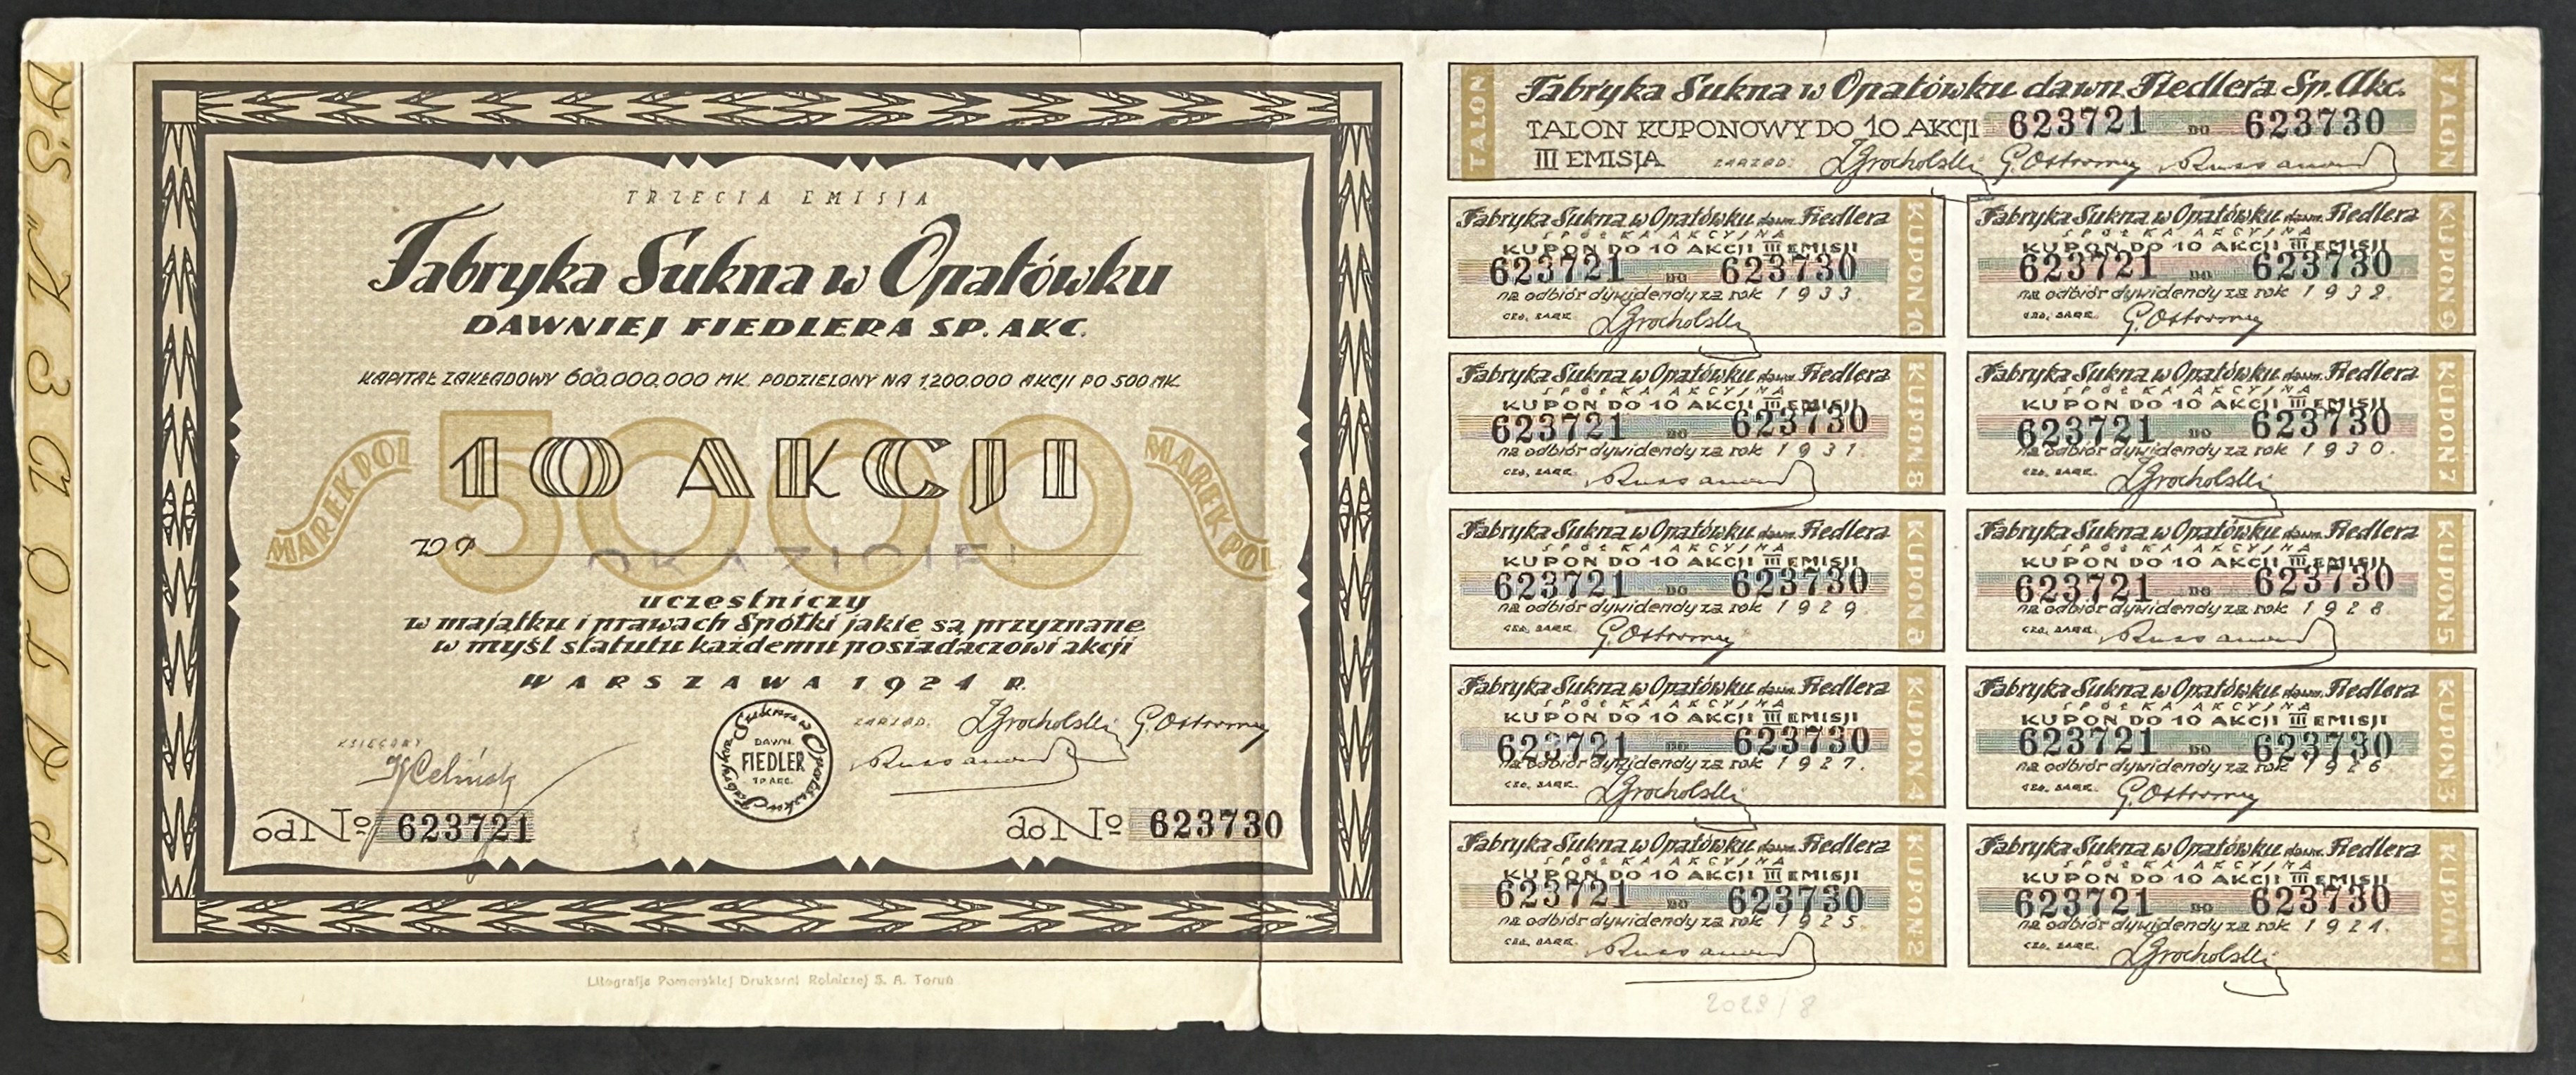 OPATÓWEK S.A.
TRZECIA EMISJA
Fabryka Sukna w Opatówku
DAWNIEJ FIEDLERA SP. AKC.
KAPITAŁ ZAKŁADOWY 600.000.000 MK. PODZIELONY NA 1.200.000 AKCJI PO 500 MK.
MAREK POL 5000 MAREK POL
10 AKCJI
dla OKAZICIELA
uczestniczy
w majątku i prawach Spółki jakie są przyznane
w myśl statutu każdemu posiadaczowi akcji
WARSZAWA 1924 R.
KSIĘGOWY
ZARZĄD:
Fabryka Sukna w Opatówku
DAWN.
FIEDLER
SP. AKC.
od No 623721 do No 623730
Litografja Pomorskiej Drukarni Rolniczej S. A. Toruń
TALON
Fabryka Sukna w Opatówku dawn. Fiedlera Sp. Akc.
TALON KUPONOWY DO 10 AKCJI 623721 DO 623730
III EMISJA ZARZĄD:
TALON
Fabryka Sukna w Opatówku dawn. Fiedlera
SPÓŁKA AKCYJNA
KUPON DO 10 AKCJI III EMISJI
623721 DO 623730
na odbiór dywidendy za rok 1933.
CZŁ. ZARZ.
KUPON 10
Fabryka Sukna w Opatówku dawn. Fiedlera
SPÓŁKA AKCYJNA
KUPON DO 10 AKCJI III EMISJI
623721 DO 623730
na odbiór dywidendy za rok 1932.
CZŁ. ZARZ.
KUPON 9
Fabryka Sukna w Opatówku dawn. Fiedlera
SPÓŁKA AKCYJNA
KUPON DO 10 AKCJI III EMISJI
623721 DO 623730
na odbiór dywidendy za rok 1931.
CZŁ. ZARZ.
KUPON 8
Fabryka Sukna w Opatówku dawn. Fiedlera
SPÓŁKA AKCYJNA
KUPON DO 10 AKCJI III EMISJI
623721 DO 623730
na odbiór dywidendy za rok 1930.
CZŁ. ZARZ.
KUPON 7
Fabryka Sukna w Opatówku dawn. Fiedlera
SPÓŁKA AKCYJNA
KUPON DO 10 AKCJI III EMISJI
623721 DO 623730
na odbiór dywidendy za rok 1929.
CZŁ. ZARZ.
KUPON 6
Fabryka Sukna w Opatówku dawn. Fiedlera
SPÓŁKA AKCYJNA
KUPON DO 10 AKCJI III EMISJI
623721 DO 623730
na odbiór dywidendy za rok 1928
CZŁ. ZARZ.
KUPON 5
Fabryka Sukna w Opatówku dawn. Fiedlera
SPÓŁKA AKCYJNA
KUPON DO 10 AKCJI III EMISJI
623721 DO 623730
na odbiór dywidendy za rok 1927.
CZŁ. ZARZ.
KUPON 4
Fabryka Sukna w Opatówku dawn. Fiedlera
SPÓŁKA AKCYJNA
KUPON DO 10 AKCJI III EMISJI
623721 DO 623730
na odbiór dywidendy za rok 1926.
CZŁ. ZARZ.
KUPON 3
Fabryka Sukna w Opatówku dawn. Fiedlera
SPÓŁKA AKCYJNA
KUPON DO 10 AKCJI III EMISJI
623721 DO 623730
na odbiór dywidendy za rok 1925.
CZŁ. ZARZ.
KUPON 2
Fabryka Sukna w Opatówku dawn. Fiedlera
SPÓŁKA AKCYJNA
KUPON DO 10 AKCJI III EMISJI
623721 DO 623730
na odbiór dywidendy za rok 1924.
CZŁ. ZARZ.
KUPON 1